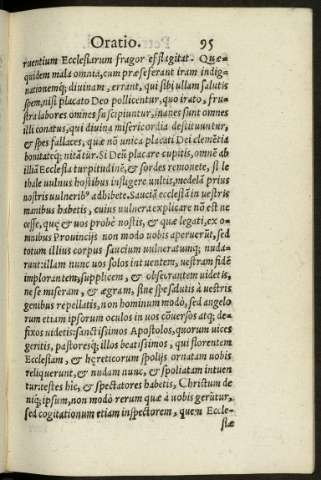 Oratio. 95
ruentium Ecclesiarum fragor efflagitat. Quæ-
quidem mala omnia, cum præseferant iram indig-
nationemq; diuinam, errant, qui sibi ullam salutis
spem, nisi placato Deo pollicentur, quo irato, fru-
stra labores omnes suscipiuntur, inanes sunt omnes
illi conatus, qui diuina misericordia destituuntur,
& spes fallaces, quæ nõ unica placati Dei clemẽtia
bonitateq; nitãtur. Si Deũ placare cupitis, omnẽ ab
illiã Ecclesia turpitudinẽ, & sordes remouete, si le
thale uulnus hostibus infligere uultis, medelã prius
nostris uulneribꝰ adhibete. Sanctã ecclesiã in vestris
manibus habetis, cuius uulnera explicare nõ est ne
cesse, quę & uos probẽ nostis, & quæ legati, ex o-
mnibus Prouincijs non modo uobis aperuerũt, sed
totum illius corpus saucium uulneratumq; nuda-
runt: illam nunc uos solos intuentem, uestram fidẽ
implorantem, supplicem, & obsecrantem uidetis,
ne se miseram, & ægram, sine spe salutis à vestris
genibus repellatis, non hominum modò, sed angelo
rum etiam ipsorum oculos in uos cõuersos atq; de-
fixos uidetis: sanctissimos Apostolos, quorum uices
geritis, pastoresq; illos beatissimos, qui florentem
Ecclesiam, & hęreticorum spolijs ornatam uobis
reliquerunt, & nudam nunc, & spoliatam intuen
tur: testes hîc, & spectatores habetis, Christum de
niq; ipsum, non modò rerum quæ à uobis gerũtur,
sed cogitationum etiam inspectorem, quem Eccle-
siæ